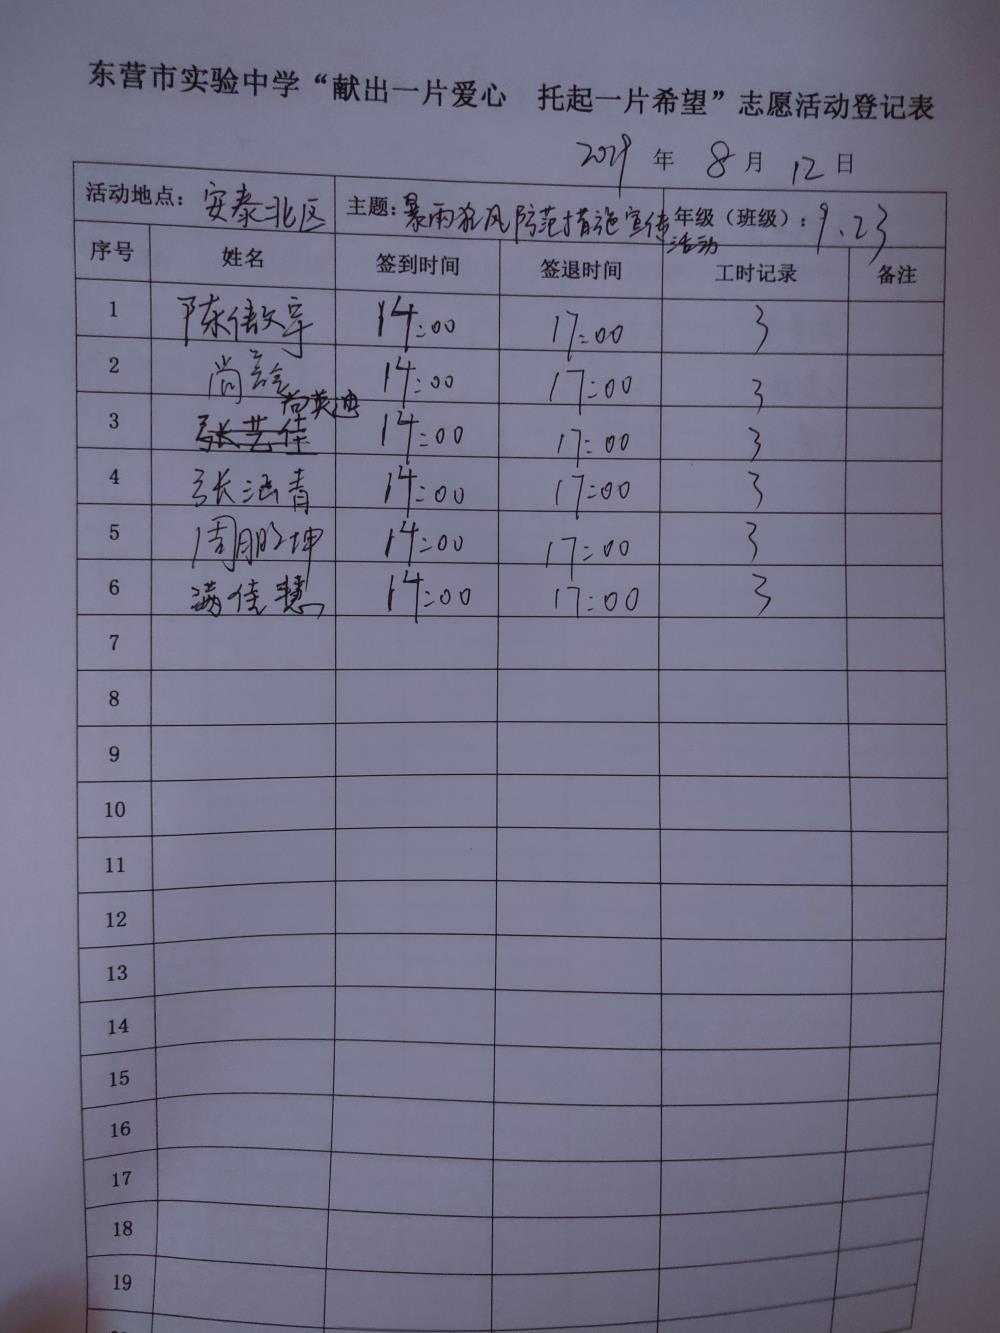 东营市实验中学“献出一片爱心 托起一片希望”志愿活动登记表
2019 年 8 月 12 日
活动地点：安泰北区 主题：暴雨狂风防范措施宣传活动 年级（班级）：9.23
序号 姓名 签到时间 签退时间 工时记录 备注
1 14:00 17:00 3
2 尚 14:00 17:00 3
尚英迪
3 张艺佳 14:00 17:00 3
4 张涵青 14:00 17:00 3
5 周 坤 14:00 17:00 3
6 满佳慧 14:00 17:00 3
7
8
9
10
11
12
13
14
15
16
17
18
19